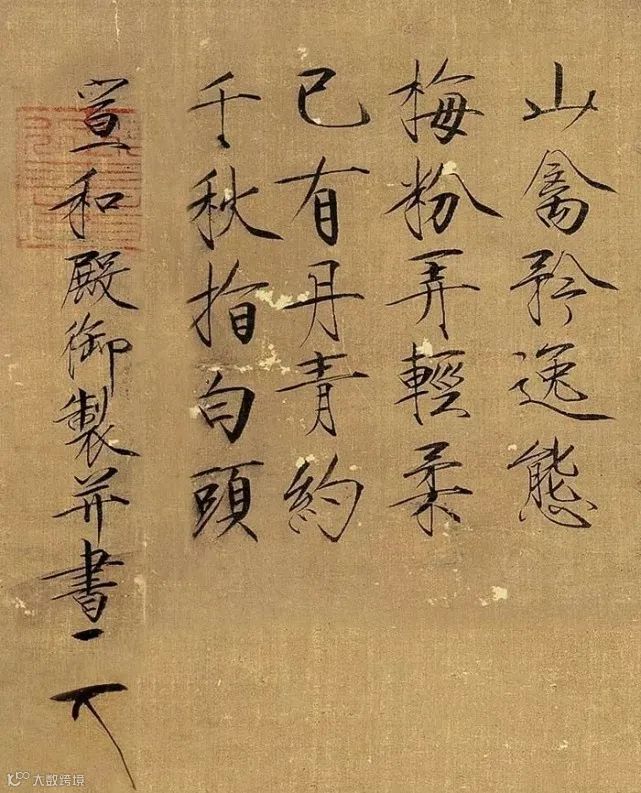 山禽矜逸態
梅粉弄輕柔
已有丹青約
千秋指白頭
宣和殿御製并書
大数跨境